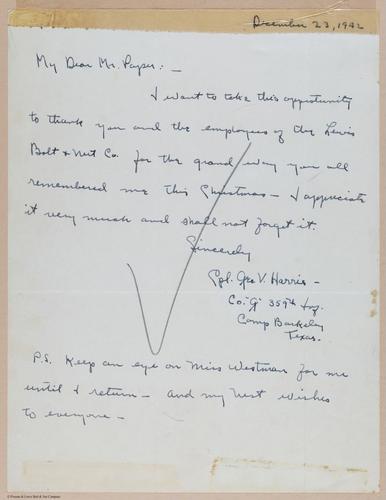 December 23, 1942
My Dear Mr. Payer: —
I want to take this opportunity
to thank you and the employees of the Lewis
Bolt & Nut Co. for the grand way you all
remembered me this Christmas — I appreciate
it very much and shall not forget it.
Sincerely
Cpl. Geo V. Harris —
Co. "G" 359th Inf.
Camp Barkeley
Texas.
P.S. Keep an eye on Miss Westman for me
until I return — and my best wishes
to everyone —